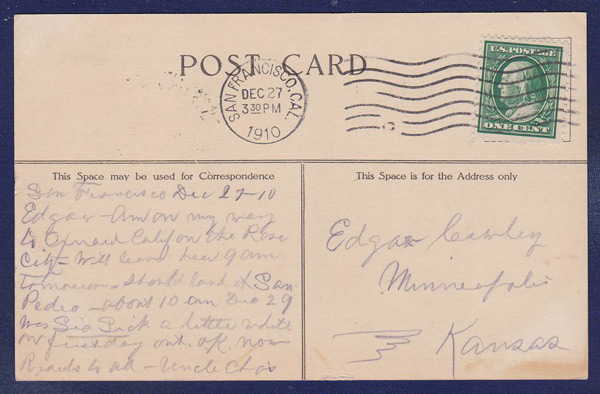 POST CARD
SAN FRANCISCO, CAL.
DEC 27
3 30 PM
1910
U.S. POSTAGE
ONE CENT
This Space may be used for Correspondence
San Francisco Dec 27-10
Edgar - Am on my way
to Oxnard Calif on the Rose
City - Will leave here 9 am
Tomorrow - should land at San
Pedro - about 10 am Dec 29
Was Sea Sick a little while
on Tuesday but ok now
Regards to all - Uncle Chas
This Space is for the Address only
Edgar Cawley
Minneapolis
Kansas